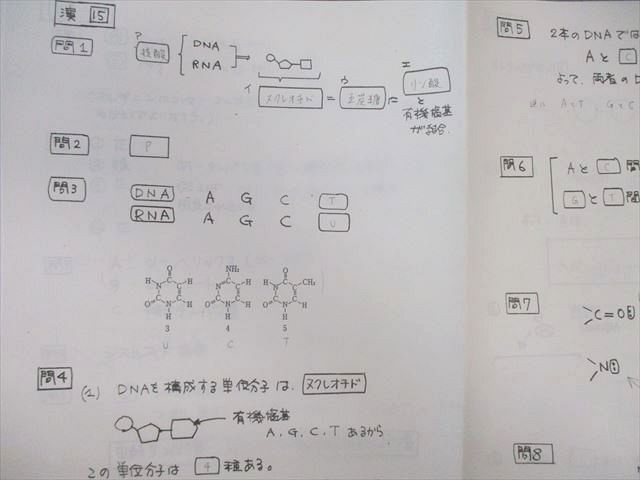 演 15
問1
ア
核酸
DNA
RNA
イ
ヌクレオチド
=
ウ
五炭糖
エ
リン酸
と
有機塩基
が結合.
問2 P
問3 DNA A G C T
RNA A G C U
O
NH₂
O
H N H
N H
H N CH₃
O N H
O N H
O N H
H
H
H
3 4 5
U C T
問4 (1) DNAを構成する単位分子は、ヌクレオチド
有機塩基
A、G、C、Tあるから
この単位分子は 4 種ある。
問5 2本のDNAでは
AとC
よって、両者の
問6 AとC間
GとT間
問7 C=O
N
問8